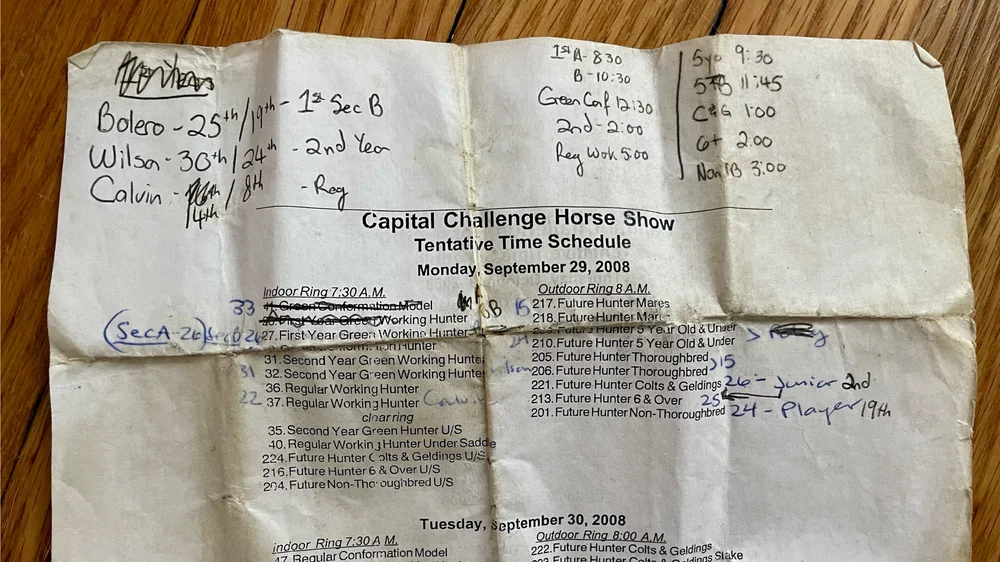 Bolero - 25th/19th - 1st Sec B
Wilson - 30th/24th - 2nd Year
Calvin - 16th/8th - Reg
14th
1st A - 830
B - 10:30
Green Conf 12:30
2nd - 2:00
Reg Wok 5:00
5yo 9:30
5TB 11:45
C&G 1:00
6+ 2:00
Non TB 3:00
Capital Challenge Horse Show
Tentative Time Schedule
Monday, September 29, 2008
Indoor Ring 7:30 A.M.
33 11. Green Conformation Model
26. First Year Green Working Hunter
(Sec A - 26) 27. First Year Green Working Hunter
Hunter
31. Second Year Green Working Hunter
31 32. Second Year Green Working Hunter
36. Regular Working Hunter
22 37. Regular Working Hunter Calvin
clear ring
35. Second Year Green Hunter U/S
40. Regular Working Hunter Under Saddle
224. Future Hunter Colts & Geldings U/S
216. Future Hunter 6 & Over U/S
204. Future Non-Thoroughbred U/S
Outdoor Ring 8 A.M.
15 217. Future Hunter Mares
218. Future Hunter Mares
209. Future Hunter 5 Year Old & Under
210. Future Hunter 5 Year Old & Under
205. Future Hunter Thoroughbred
206. Future Hunter Thoroughbred 15
221. Future Hunter Colts & Geldings 26 - Junior 2nd
213. Future Hunter 6 & Over 25
201. Future Hunter Non-Thoroughbred 24 - Player 19th
Tuesday, September 30, 2008
Indoor Ring 7:30 A.M.
47. Regular Conformation Model
Outdoor Ring 8:00 A.M.
222. Future Hunter Colts & Geldings
223. Future Hunter Colts & Geldings Stake